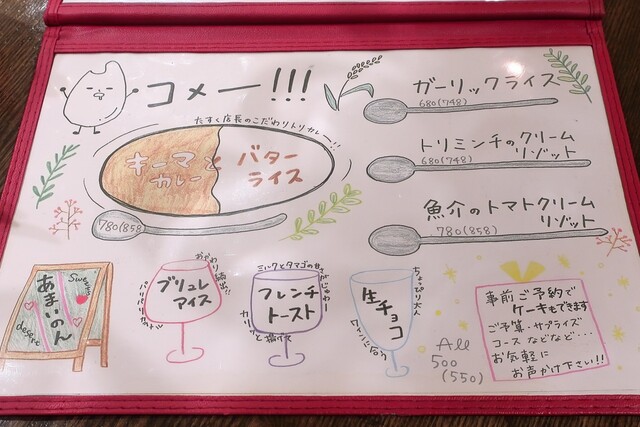 コメー!!!
たすく店長のこだわりトリカレー!!
キーマと バター
カレー ライス
780(858)
ガーリックライス
680(748)
トリミンチのクリーム
リゾット
680(748)
魚介のトマトクリーム
リゾット
780(858)
Sweets
あまいのん
desert
ブリュレ
アイス
ミルクとタマゴの甘
フレンチ
トースト
カリッと揚げて
ちょっぴり大人
生チョコ
All
500
(550)
事前ご予約で
ケーキもできます
ご予算・サプライズ
コースなどなど…
お気軽に
お声かけ下さい!!